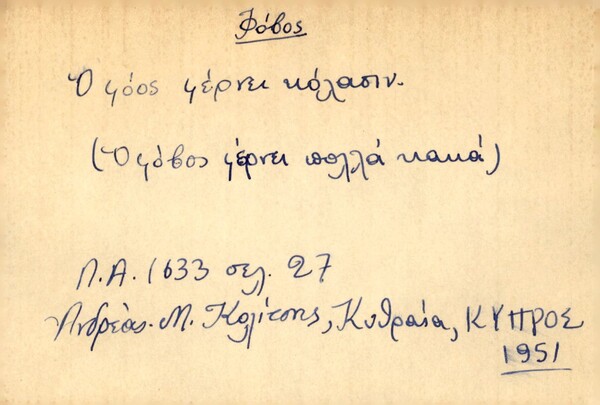 Φόβος
Ὁ φόος φέρνει κόλασιν.
(Ὁ φόβος φέρνει πολλά κακά)
Λ.Α. 1633 σελ. 27
Ἀνδρέας. Μ. Κολίτσης, Κυθραία, ΚΥΠΡΟΣ
1951